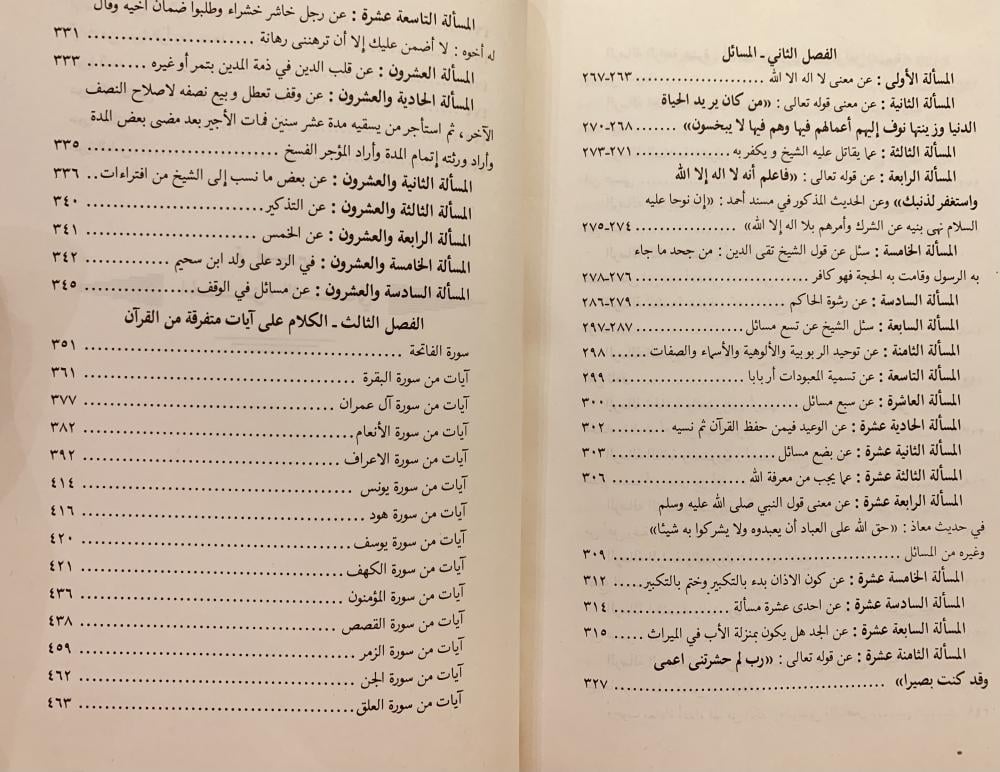 الفصل الثاني ـ المسائل
المسألة الأولى : عن معنى لا اله الا الله ...................... ٢٦٣ـ٢٦٧
المسألة الثانية : عن معنى قوله تعالى : «من كان يريد الحياة
الدنيا وزينتها نوف إليهم أعمالهم فيها وهم فيها لا يبخسون» ....... ٢٦٨ـ٢٧٠
المسألة الثالثة : عما يقاتل عليه الشيخ و يكفر به ................ ٢٧١ـ٢٧٣
المسألة الرابعة : عن قوله تعالى : «فاعلم أنه لا اله إلا الله
واستغفر لذنبك» وعن الحديث المذكور في مسند أحمد : «إن نوحا عليه
السلام نهى بنيه عن الشرك وأمرهم بلا اله إلا الله» ................. ٢٧٤ـ٢٧٥
المسألة الخامسة : سئل عن قول الشيخ تقى الدين : من جحد ما جاء
به الرسول وقامت به الحجة فهو كافر ............................ ٢٧٦ـ٢٧٨
المسألة السادسة : عن رشوة الحاكم ........................ ٢٧٩ـ٢٨٦
المسألة السابعة : سئل الشيخ عن تسع مسائل ................... ٢٨٧ـ٢٩٧
المسألة الثامنة : عن توحيد الربوبية والألوهية والأسماء والصفات ...... ٢٩٨
المسألة التاسعة : عن تسمية المعبودات أربابا ...................... ٢٩٩
المسألة العاشرة : عن سبع مسائل ............................... ٣٠٠
المسألة الحادية عشرة : عن الوعيد فيمن حفظ القرآن ثم نسيه ......... ٣٠٢
المسألة الثانية عشرة : عن بضع مسائل ........................... ٣٠٣
المسألة الثالثة عشرة : عما يجب من معرفة الله ...................... ٣٠٦
المسألة الرابعة عشرة : عن معنى قول النبي صلى الله عليه وسلم
في حديث معاذ : «حق الله على العباد أن يعبدوه ولا يشركوا به شيئا»
وغيره من المسائل ............................................. ٣٠٩
المسألة الخامسة عشرة : عن كون الاذان بدء بالتكبير وختم بالتكبير..... ٣١٢
المسألة السادسة عشرة : عن احدى عشرة مسألة .................... ٣١٤
المسألة السابعة عشرة : عن الجد هل يكون بمنزلة الأب في الميراث ..... ٣١٥
المسألة الثامنة عشرة : عن قوله تعالى : «رب لم حشرتنى اعمى
وقد كنت بصيرا» ............................................. ٣٢٧
المسألة التاسعة عشرة : عن رجل خاشر خشراء وطلبوا ضمان اخيه وقال
له أخوه : لا أضمن عليك إلا أن ترهننى رهانة ........................ ٣٣١
المسألة العشرون : عن قلب الدين في ذمة المدين بتمر أو غيره .......... ٣٣٣
المسألة الحادية والعشرون : عن وقف تعطل و بيع نصفه لاصلاح النصف
الآخر ، ثم استأجر من يسقيه مدة عشر سنين فمات الأجير بعد مضى بعض المدة
وأراد ورثته إتمام المدة وأراد المؤجر الفسخ ........................... ٣٣٥
المسألة الثانية والعشرون : عن بعض ما نسب إلى الشيخ من افتراءات.. ٣٣٦
المسألة الثالثة والعشرون : عن التذكير ........................... ٣٤٠
المسألة الرابعة والعشرون : عن الخمس ........................... ٣٤١
المسألة الخامسة والعشرون : في الرد على ولد ابن سحيم ............. ٣٤٢
المسألة السادسة والعشرون : عن مسائل في الوقف.................. ٣٤٥
الفصل الثالث ـ الكلام على آيات متفرقة من القرآن
سورة الفاتحة .............................................. ٣٥١
آيات من سورة البقرة ....................................... ٣٦١
آيات من سورة آل عمران ................................... ٣٧٧
آيات من سورة الأنعام...................................... ٣٨٢
آيات من سورة الاعراف .................................... ٣٩٢
آيات من سورة يونس ....................................... ٤١٤
آيات من سورة هود ........................................ ٤١٦
آيات من سورة يوسف...................................... ٤٢٠
آيات من سورة الكهف ..................................... ٤٢١
آيات من سورة المؤمنون .................................... ٤٣٦
آيات من سورة القصص .................................... ٤٣٨
آيات من سورة الزمر ....................................... ٤٥٩
آيات من سورة الجن ....................................... ٤٦٢
آيات من سورة العلق....................................... ٤٦٣